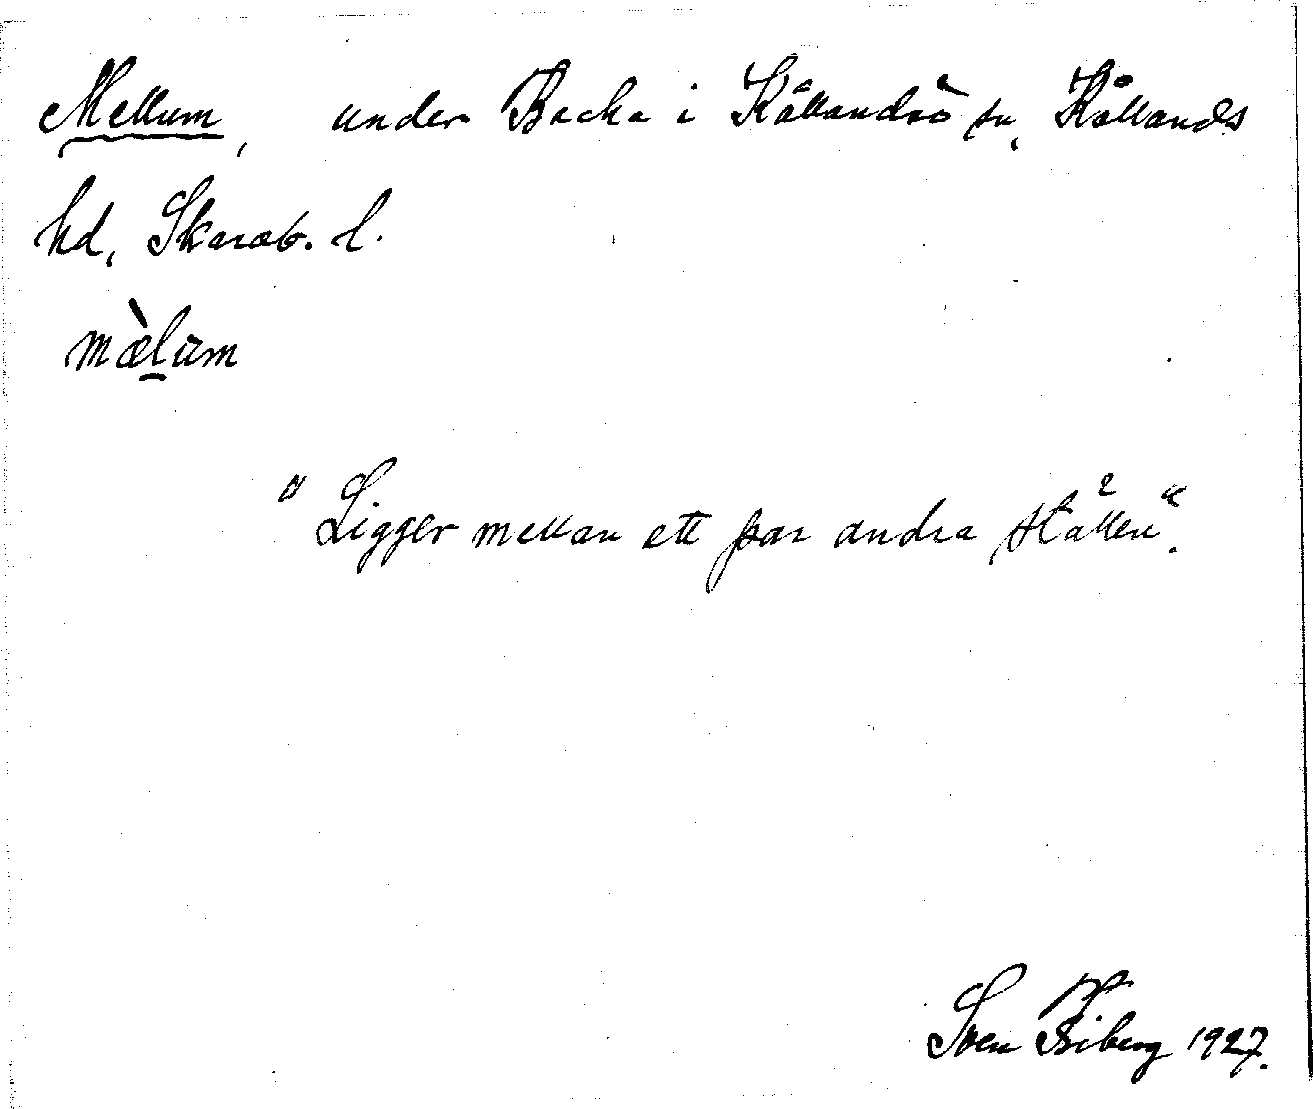 Mellum, under Backa i Kållandsö sn, Kållands
hd, Skarab. l.
mæ̀l̠um
"Ligger mellan ett par andra ställen".
Sven Biberg 1927.